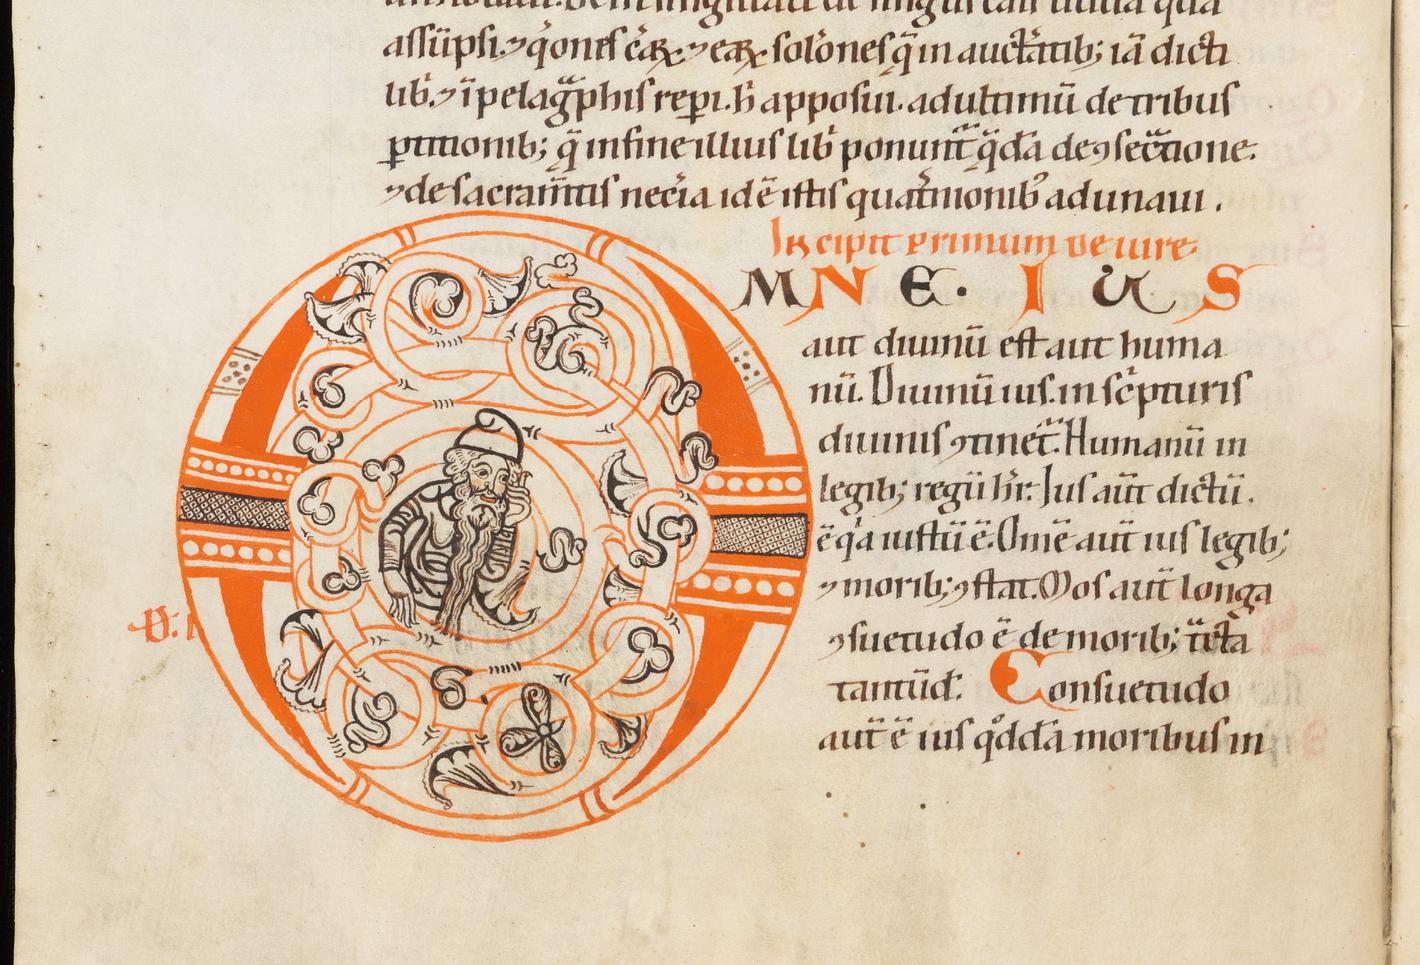 assūpsi. ⁊ q̄ones ear̄ꝝ ⁊ eaꝝ solōnes q̄ in auct̄atib; iā dicti
lib̄. ⁊ ī pelagr̄phis rep̄i. h̄ apposui. ad ultimū de tribus
ꝑtitionib; q̄ in fine illius lib̄ ponunt̄ q̄dā de ꝯsec̄tione.
⁊ de sacram̄tis nec̄ia id ē istis quat̄nionib᾽ adunaui.
Incipit primum de iure.
MNE. IUS
aut diuinū est aut huma
nū. Diuinū ius. in sc̄pturis
diuinis ꝯtinet̄. Humanū in
legib; regū h̄r. Ius aūt dictū.
ē q̄a iustū ē. Om̄e aūt ius legib;
⁊ morib; ꝯstat. Mos aūt longa
ꝯsuetudo ē de morib; t̄cta
tantūd̄. Consuetudo
aūt ē ius qͦddā moribus in